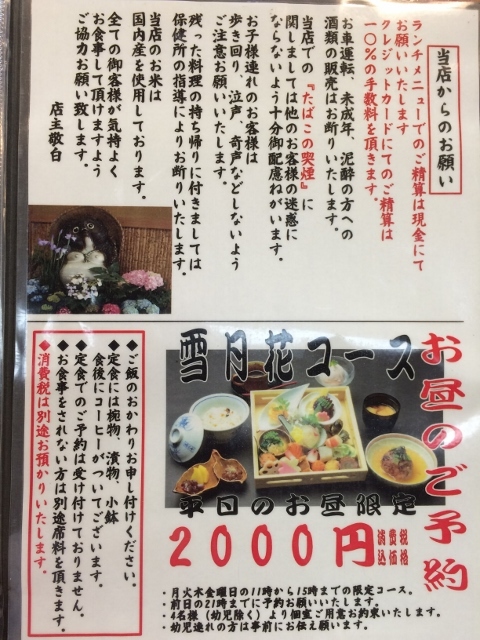 当店からのお願い
ランチメニューでのご精算は現金にて
お願いいたします
クレジットカードにてのご精算は
一〇%の手数料を頂きます。
お車運転、未成年、泥酔の方への
酒類の販売はお断りいたします。
当店での『たばこの喫煙』に
関しましては他のお客様の迷惑に
ならないよう十分御配慮ねがいます。
お子様連れのお客様は
歩き回り、泣声、奇声などしないよう
ご注意お願いいたします。
残った料理の持ち帰りに付きましては
保健所の指導によりお断りいたします。
当店のお米は
国内産を使用しております。
全ての御客様が気持よく
お食事して頂けますよう
ご協力お願い致します。
店主敬白
お昼のご予約
雪月花コース
平日のお昼限定
2000円
消費税込価格
・月火木金曜日の11時から15時までの限定コース。
・前日の21時までに予約お願いいたします。
・4名様(幼児除く)より個室ご用意お約束いたします。
・幼児連れの方は事前にお伝え願います。
◆ご飯のおかわりお申し付けください。
◆定食には椀物、漬物、小鉢
食後にコーヒーがついてございます。
◆定食でのご予約は受け付けておりません。
◆お食事をされない方は別途席料を頂きます。
◆消費税は別途お預かりいたします。